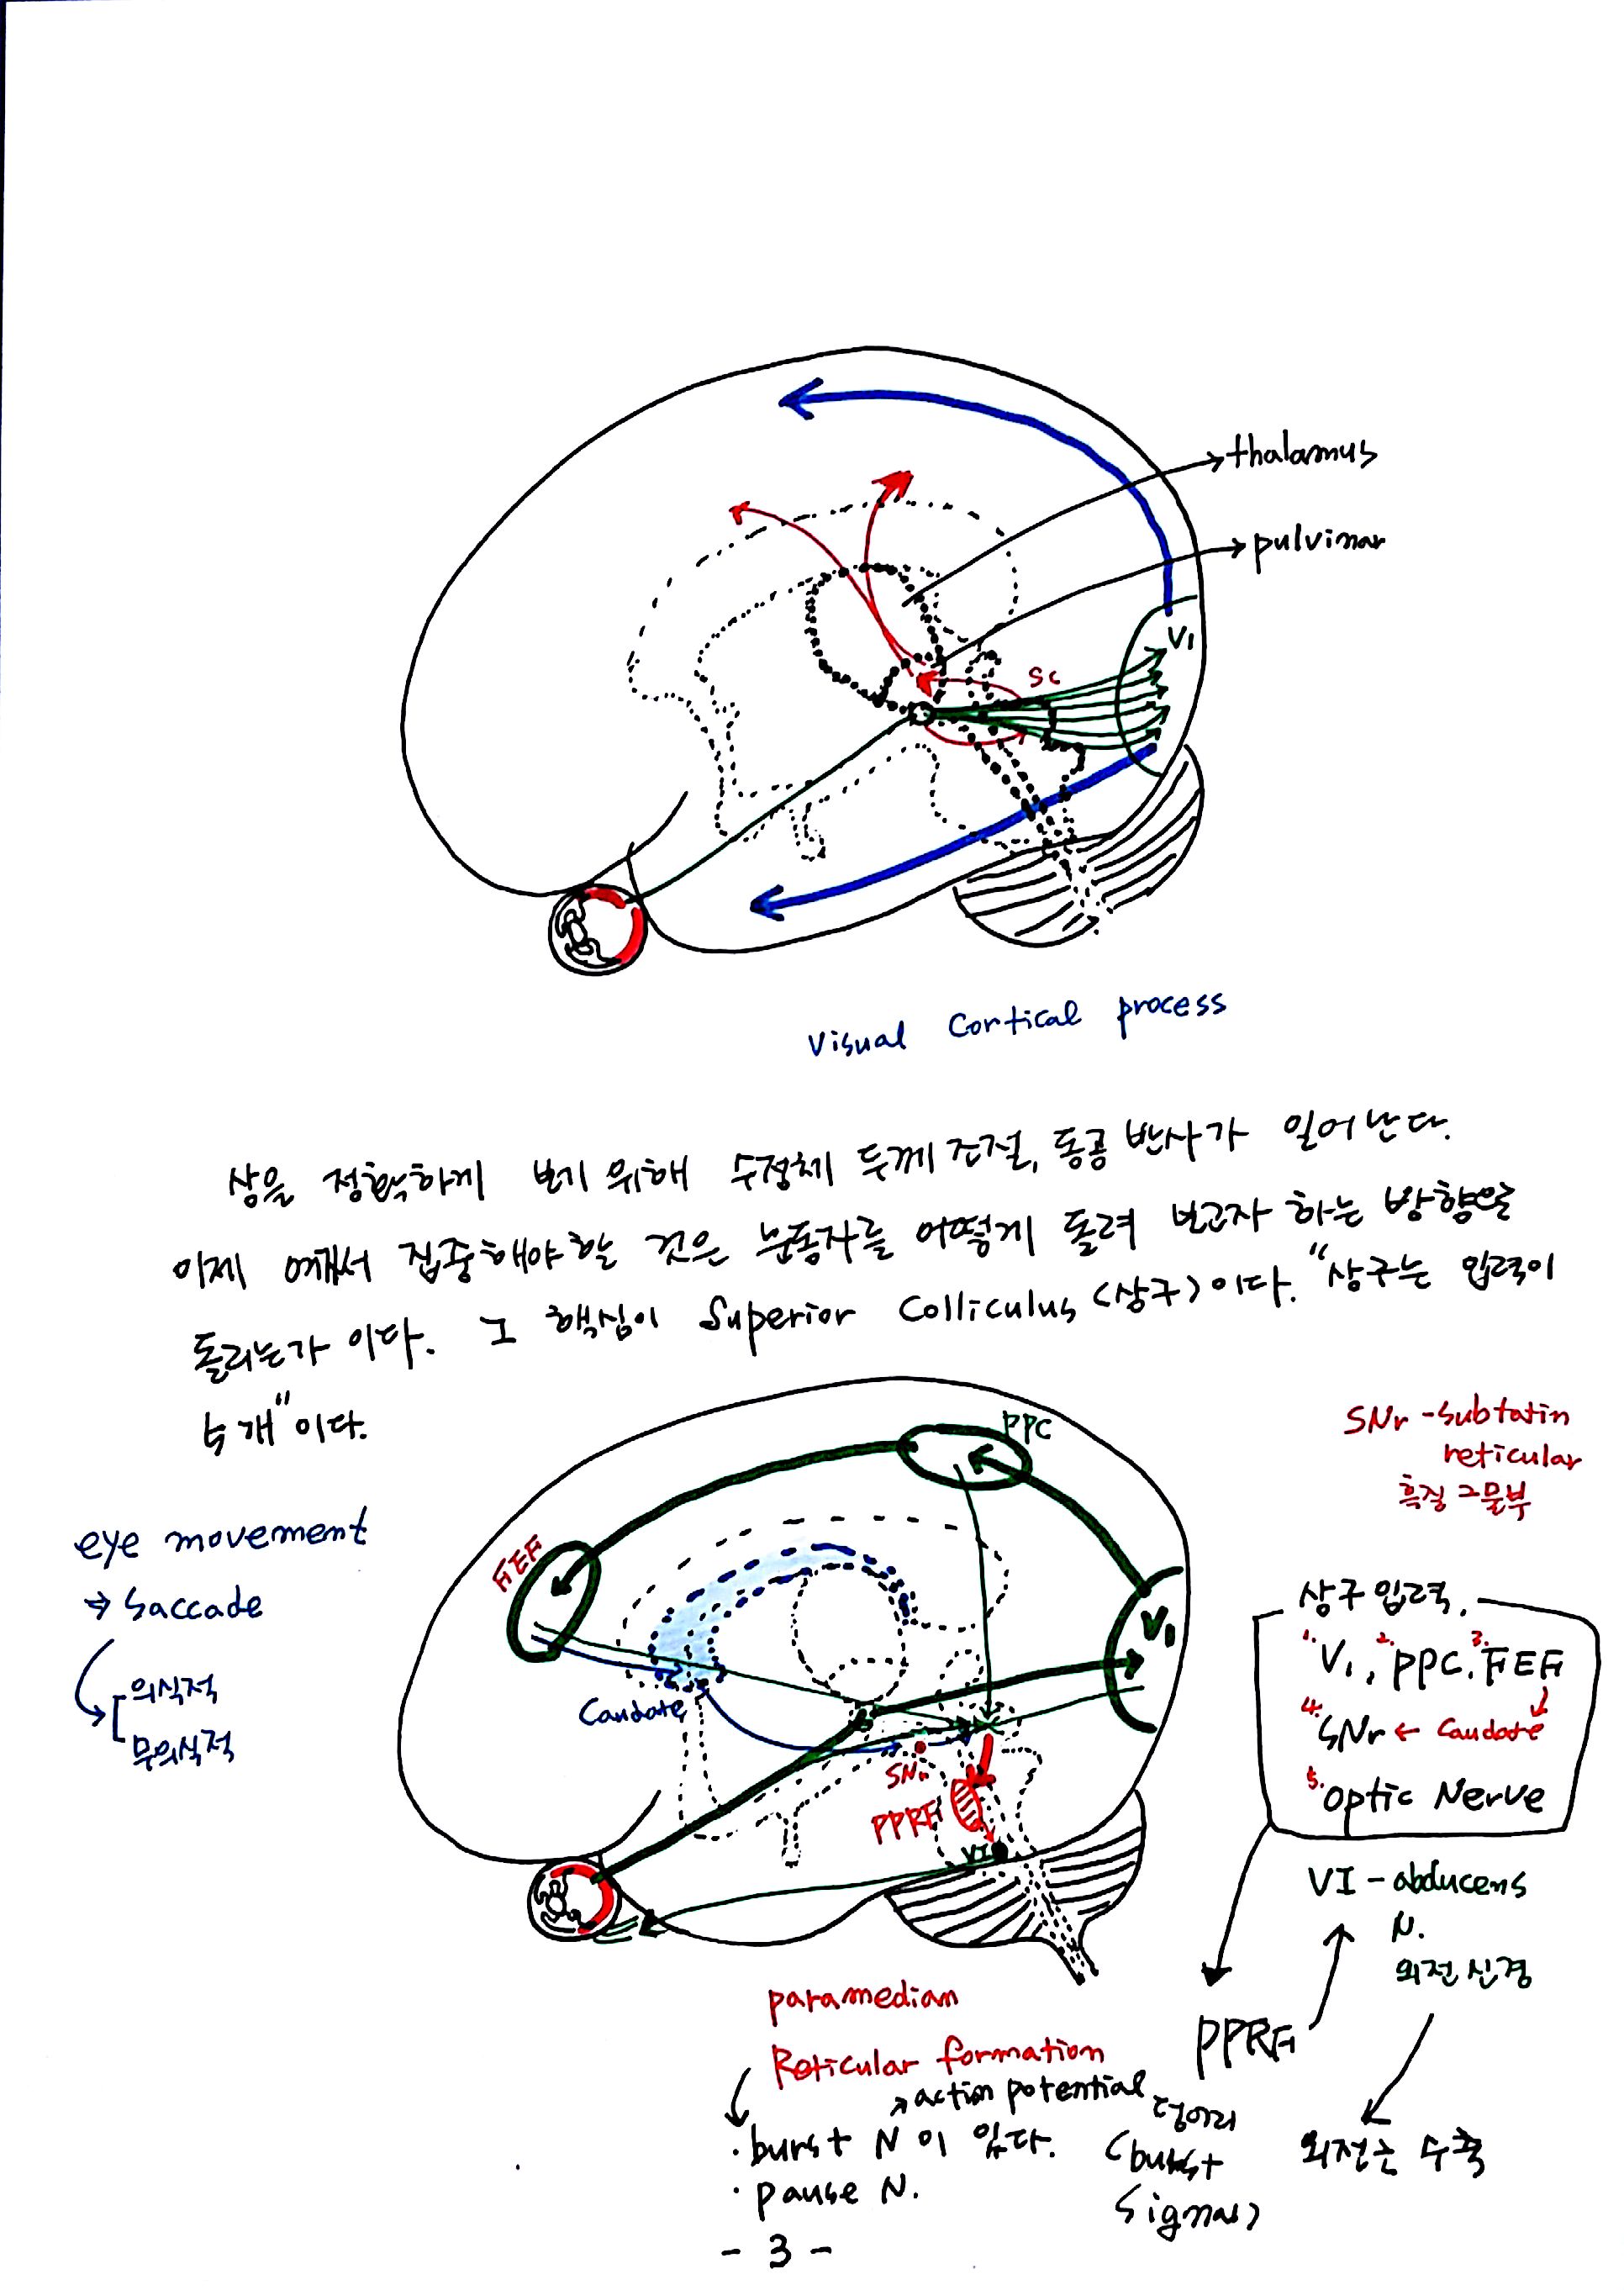 thalamus
pulvinar
V1
SC
Visual Cortical process
상을 정확하게 보기 위해 수정체 두께 조절, 동공 반사가 일어난다.
이제 여기서 집중해야할 것은 눈동자를 어떻게 돌려 보고자 하는 방향으로
돌리는가 이다. 그 핵심이 Superior Colliculus (상구)이다. "상구는 입력이
5개"이다.
PPC
SNr - Subtatin
reticular
흑질 그물부
eye movement
→ Saccade
의식적
무의식적
FEF
V1
Caudate
SNr
PPRF
VI
상구 입력.
1. V1, 2. PPC, 3. FEF
4. SNr ← Caudate
5. Optic Nerve
VI - abducens
N.
외전신경
PPRF
외전근 수축
paramedian
Reticular formation
↗ action potential 덩어리
· burst N 이 있다. (burst
· pause N. signal)
- 3 -